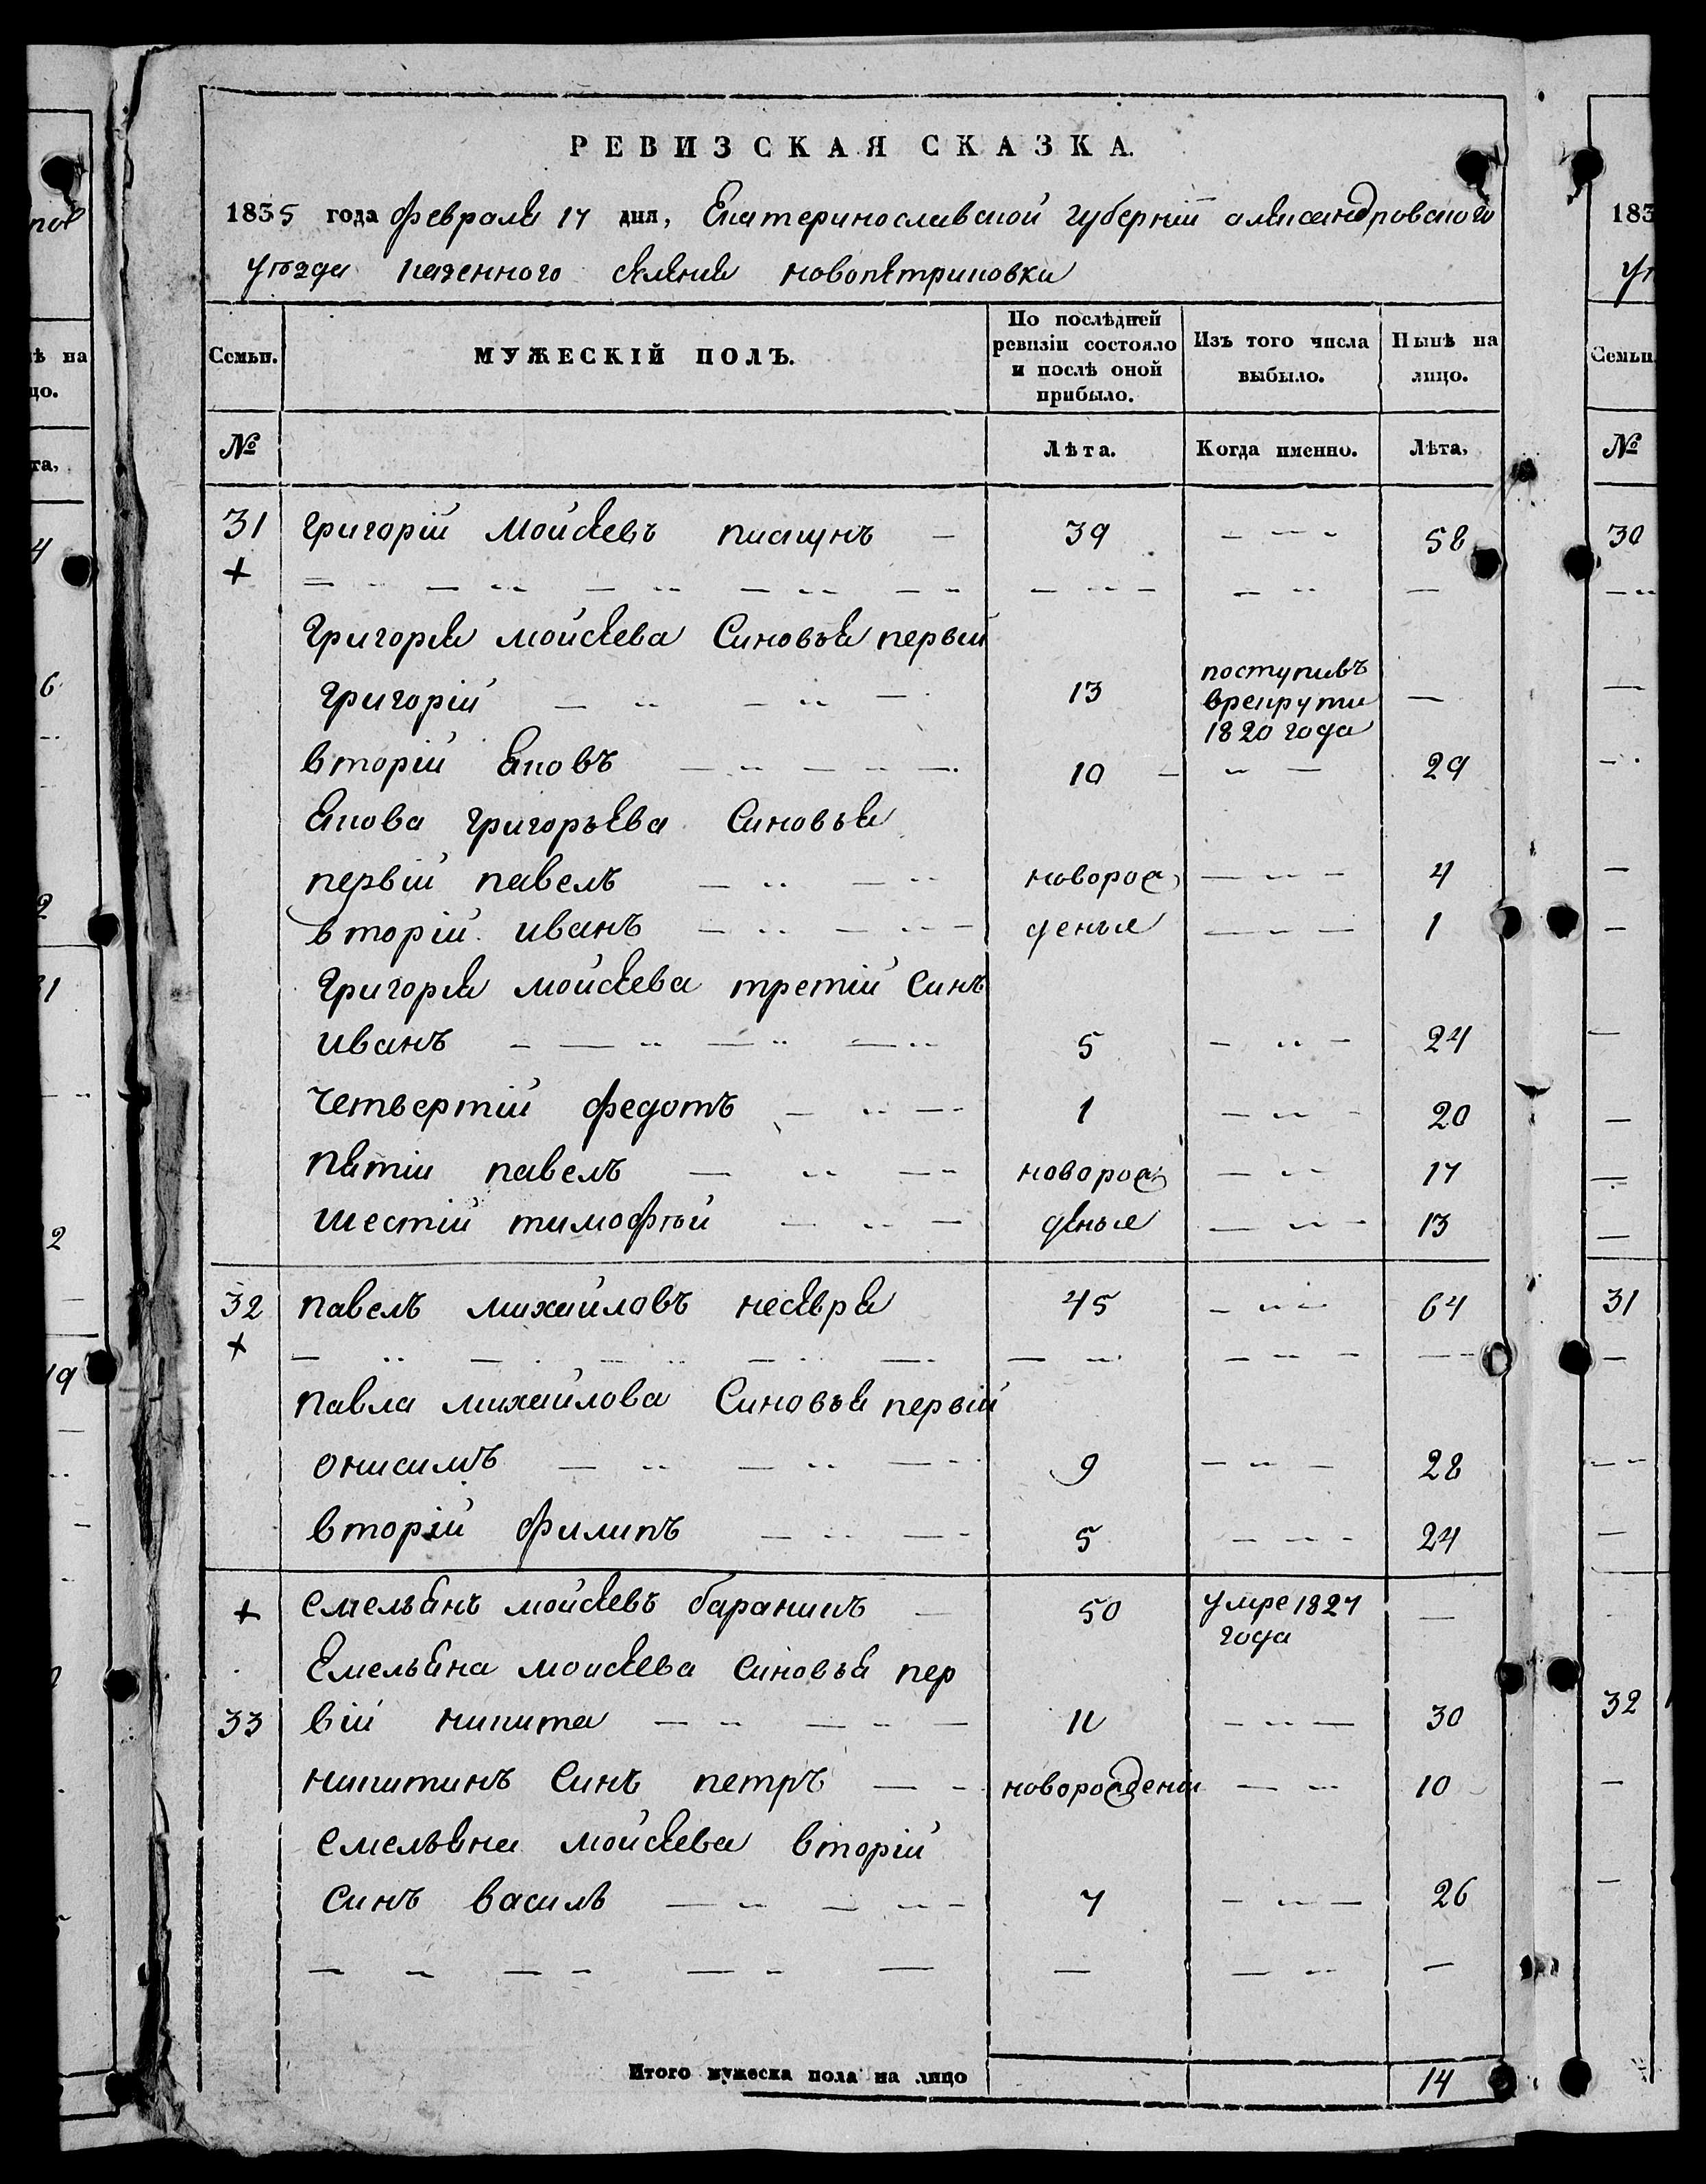 РЕВИЗСКАЯ СКАЗКА.
1835 года февраля 17 дня, Екатеринославской губернїи александровского
уѣзда казенного селения новопетриковки
Семьи. МУЖЕСКІЙ ПОЛЪ. По послѣдней ревизіи состояло и послѣ оной прибыло. Изъ того числа выбыло. Нынѣ на лицо.
№ Лѣта. Когда именно. Лѣта.
31 григорій Моисеевъ 39 58
+
Григория моисеева Синовья первій
григорій 13 поступивъ в рекруты 1820 года
вторій яковъ 10 29
якова григорьева Синовья
первій павелъ новорож 4
вторій иванъ деные 1
Григория моисеева третій Синъ
иванъ 5 24
четвертій федотъ 1 20
пятій павелъ новорож 17
шестій тимофѣй деные 13
32 павелъ михайловъ 45 64
+
павла михайлова Синовья первій
онисимъ 9 28
вторій филипъ 5 24
+ емельянъ моисеевъ баранникъ 50 умре 1827 года
Емельяна моисеева синовья пер
33 вій никита 11 30
никитинъ Синъ петръ новорожденій 10
емельяна моисеева вторій
синъ василь 7 26
Итого мужеска пола на лицо 14
183
Семьи.
№
30
31
32